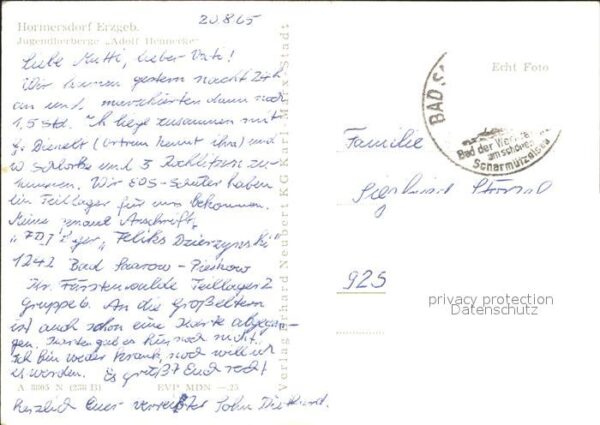 20.8.65
Hormersdorf Erzgeb.
Jugendherberge „Adolf Hennecke"
Liebe Mutti, lieber Vati!
Wir kamen gestern nacht 24h
an und marschierten dann noch
1,5 Std. Ich liege zusammen mit
Dienelt (Utram kennt ihn) und
W. Schlorke und 3 zu-
sammen. Wir EOS-Schüler haben
ein Teillager für uns bekommen.
Meine genaue Anschrift,
"FDJ Lager „Feliks Dzierzynski"
1242 Bad Saarow-Pieskow
Kr. Fürstenwalde Teillager 2
Gruppe 6. An die Großeltern
ist auch schon eine Karte abgegan-
gen. hier noch nicht.
Ich bin weder krank, noch will ich
es werden. Es grüßt Euch recht
herzlich Euer Sohn
A 3005 N (258 B) EVP MDN —.25
Verlag Erhard Neubert KG Karl-Marx-Stadt
Echt Foto
BAD S
Bad der
am schönen
Scharmützelsee
Familie
925
privacy protection
Datenschutz